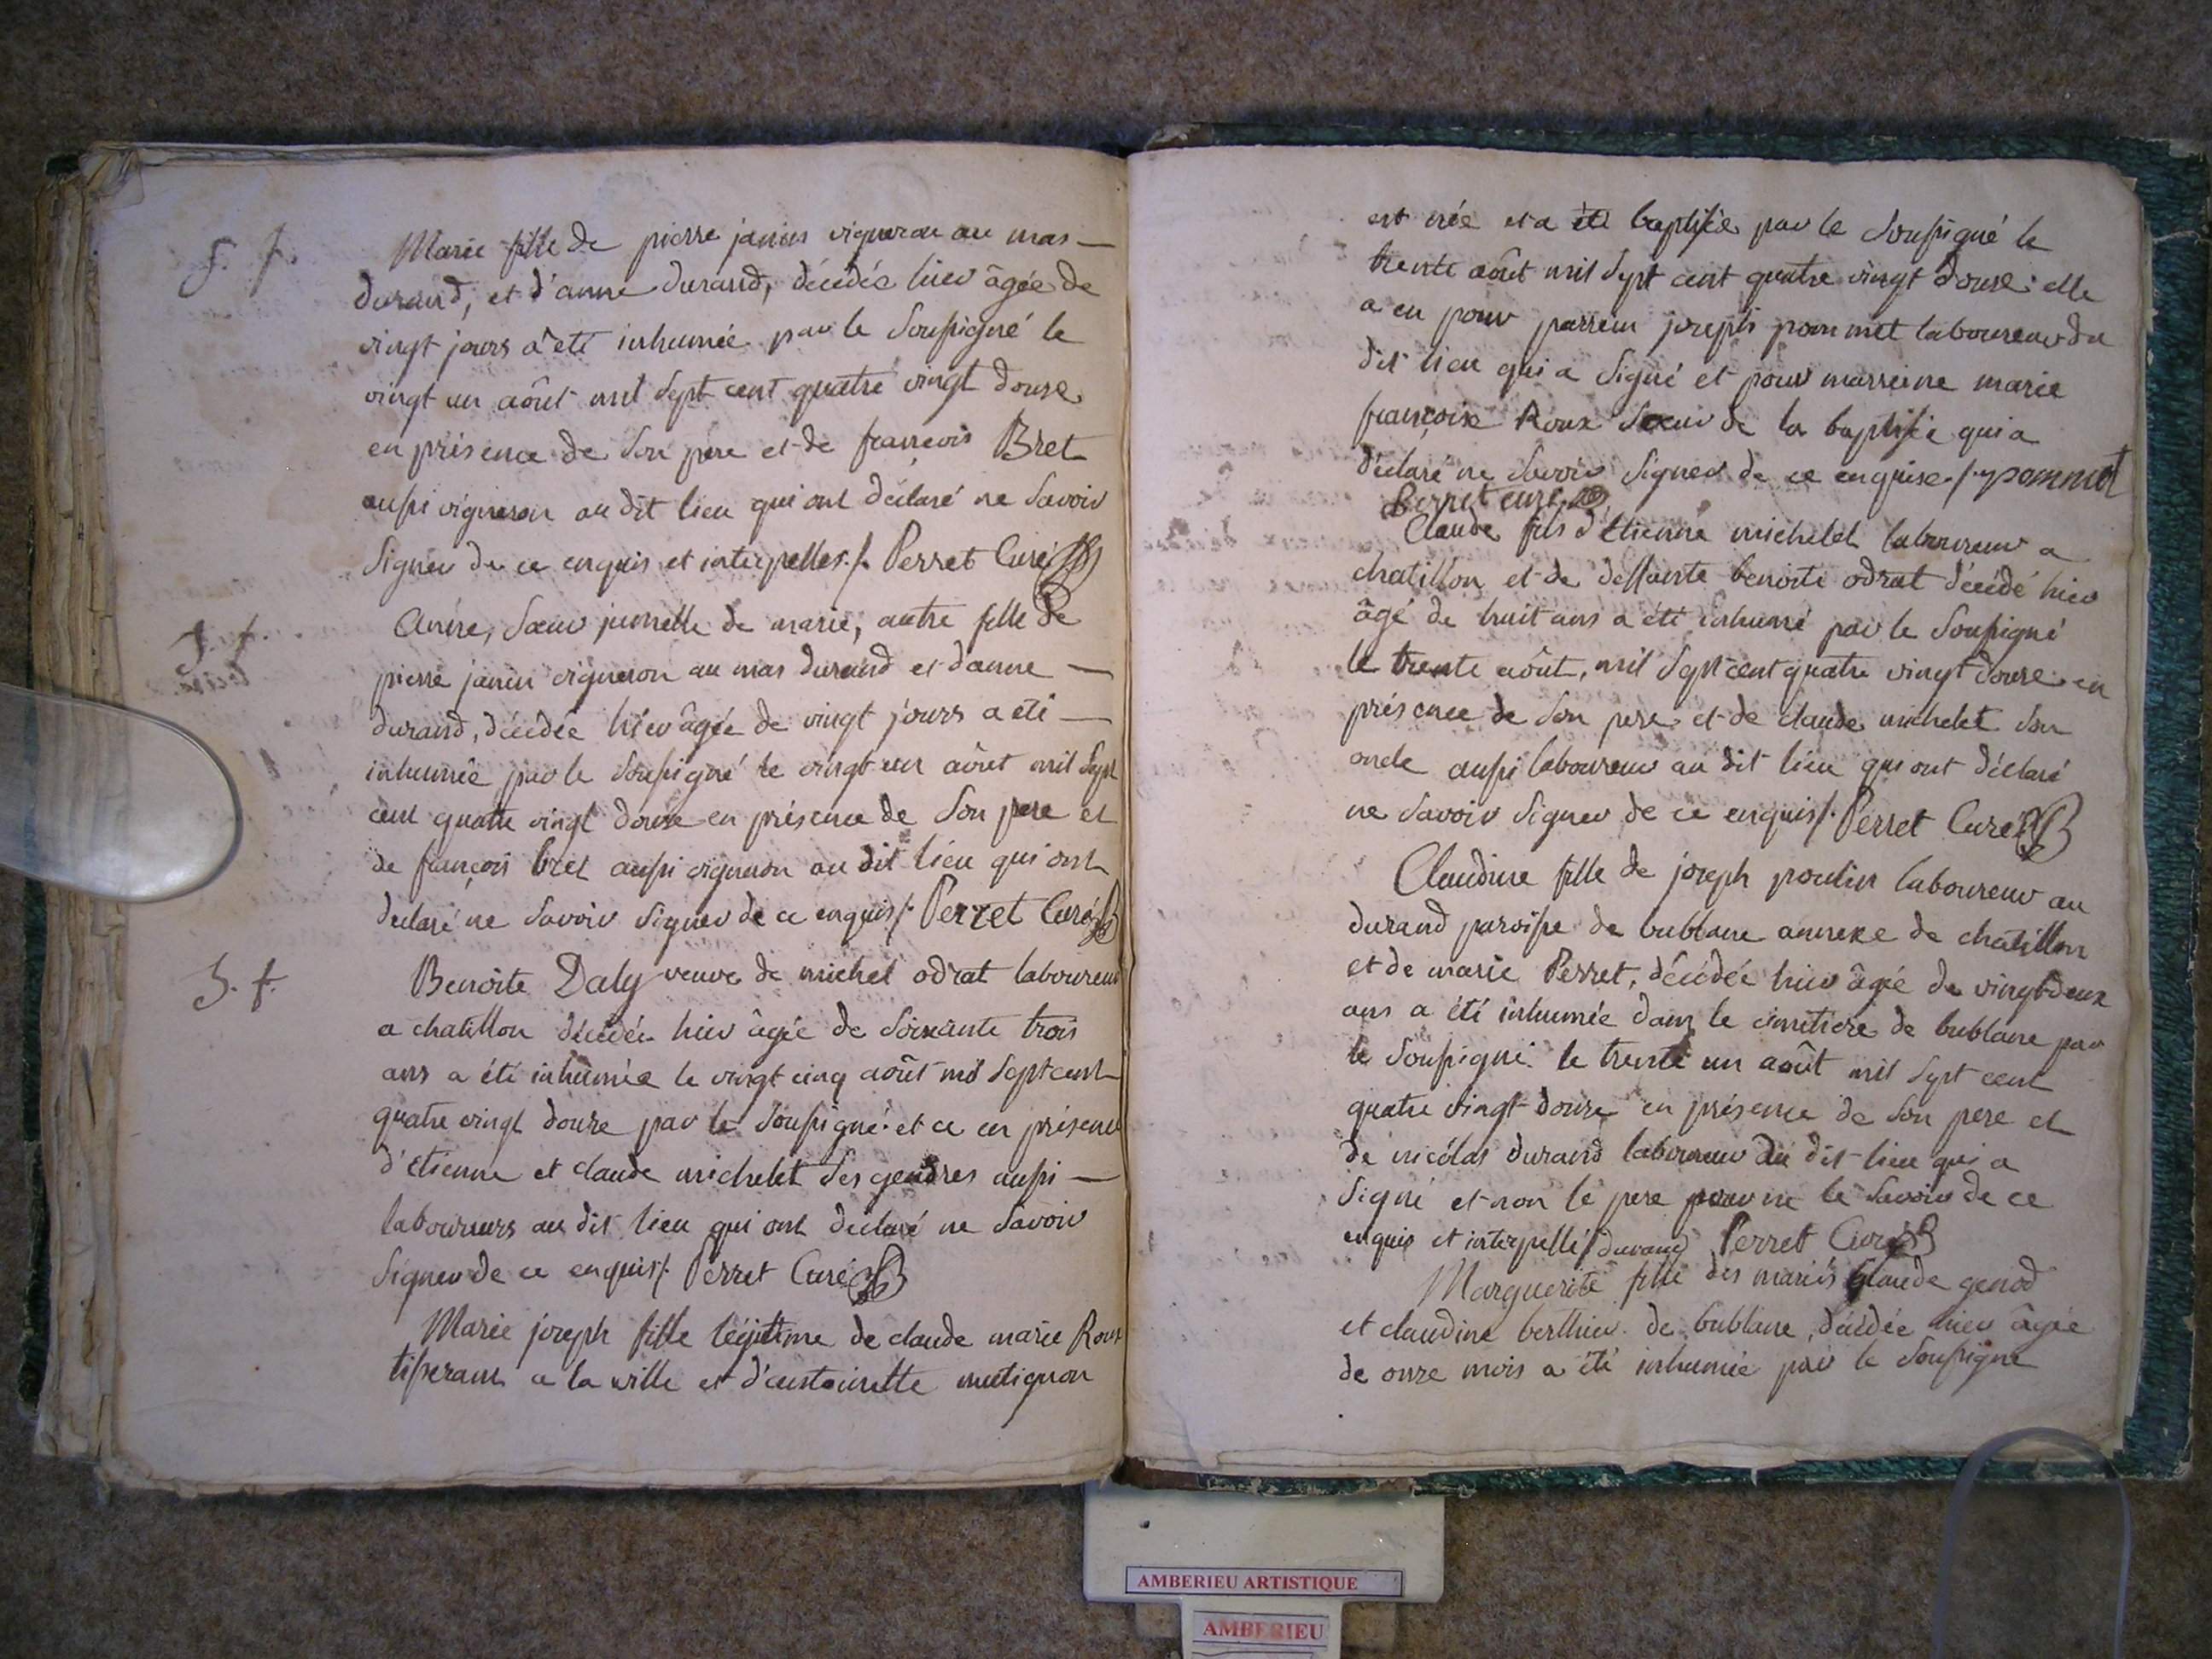 S. f.
Marie fille de pierre janin vigneron au mas
durand, et d'anne durand, décédée hier âgée de
vingt jours a été inhumée par le soussigné le
vingt un aôut mil sept cent quatre vingt douze
en présence de son pere et de francois Bret
aussi vigneron au dit lieu qui ont déclaré ne savoir
signer de ce enquis et interpelles ./. Perret Curé
S. f.
Anne, soeur jumelle de marie, autre fille de
pierre janin vigneron au mas durand et d'anne
durand, décédée hier âgée de vingt jours a été
inhumée par le soussigné le vingt un aôut mil sept
cent quatre vingt douze en présence de son pere et
de françois bret aussi vigneron au dit lieu qui ont
declaré ne savoir signer de ce enquis ./. Perret Curé
S. f.
Benoite Daly veuve de michel odrat laboureur
a chatillon décédée hier âgée de soixante trois
ans a été inhumée le vingt cinq aôut mil sept cent
quatre vingt douze par le soussigné et ce en présence
d'étienne et claude michelet ses gendres aussi
laboureurs au dit lieu qui ont declaré ne savoir
signer de ce enquis ./. Perret Curé
Marie joseph fille légitime de claude marie Roux
tisserans a la ville et d'antoinette mutignon
est née et a été baptisée par le soussigné le
trente aôut mil sept cent quatre vingt douze: elle
a eu pour parrein joseph pommet laboureur du
dit lieu qui a signé et pour marreine marie
françoise Roux soeur de la baptisée qui a
déclaré ne savoir signer de ce enquise ./. pommet
Perret curé
Claude fils d'etienne michelet laboureur a
chatillon et de deffunte benoite odrat décédé hier
âgé de huit ans a été inhumé par le soussigné
le trente aôut, mil sept cent quatre vingt douze en
présence de son pere et de claude michelet son
oncle aussi laboureur au dit lieu qui ont déclaré
ne savoir signer de ce enquis ./. Perret Curé
Claudine fille de joseph poulin laboureur au
durand paroisse de bublane annexe de chatillon
et de marie Perret, décédée hier âgée de vingt-deux
ans a été inhumée dans le cimetiere de bublane par
le soussigné le trente un août mil sept cent
quatre vingt douze en présence de son pere et
de nicólas durand laboureur du dit lieu qui a
signé et non le pere pour ne le savoir de ce
enquis et interpellé ./. durand Perret Curé
Marguerite fille des mariés Claude genod
et claudine berthier de bublane, décédée hier âgée
de onze mois a été inhumée par le soussigné
AMBERIEU ARTISTIQUE
AMBERIEU